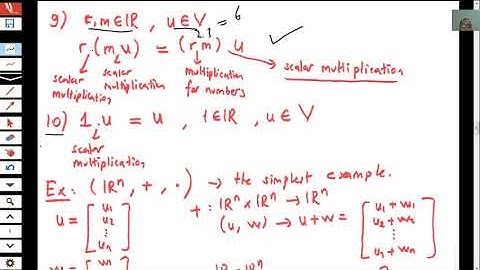 9) r,m ∈ ℝ , u ∈ V = 6
2.3
r.(m.u) = (r.m) u ✓
scalar multiplication
scalar multiplication
multiplication for numbers
scalar multiplication
10) 1.u = u , 1 ∈ ℝ , u ∈ V
scalar multiplication
Ex: (ℝⁿ, +, ·) → the simplest example.
+: ℝⁿ x ℝⁿ → ℝⁿ
u = [u₁ u₂ ⋮ uₙ]
(u, w) → u+w = [u₁ + w₁ u₂ + w₂ ⋮ uₙ + wₙ]